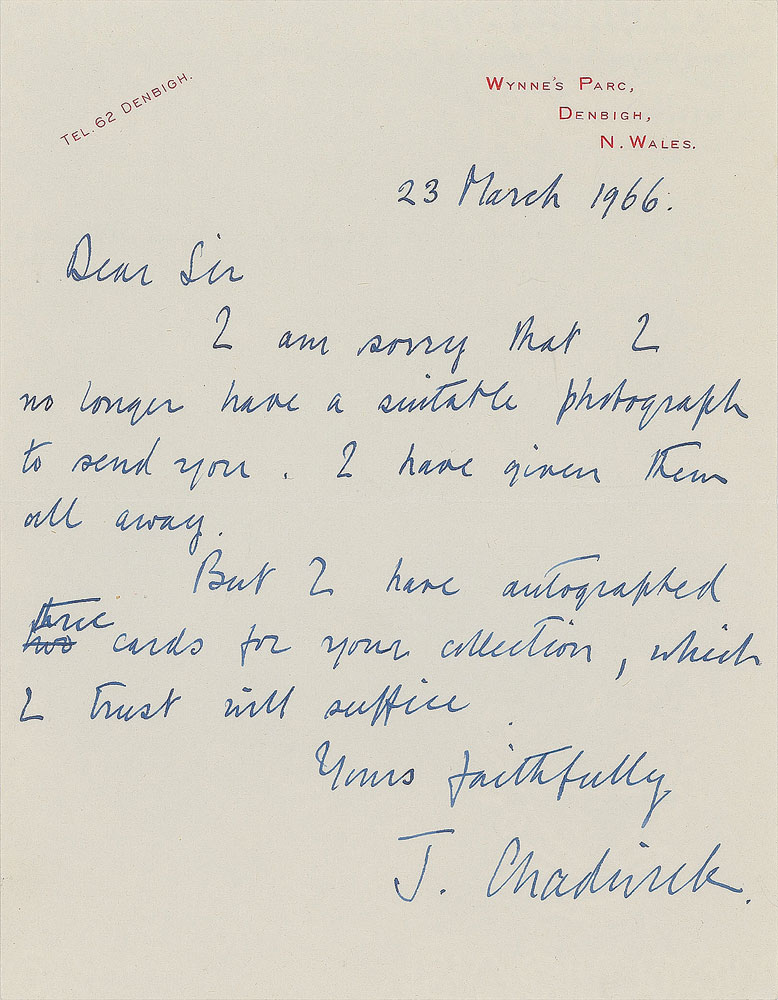 TEL. 62 DENBIGH.
WYNNE'S PARC,
DENBIGH,
N. WALES.
23 March 1966.
Dear Sir
I am sorry that I
no longer have a suitable photograph
to send you. I have given them
all away.
But I have autographed
three
two cards for your collection, which
I trust will suffice.
Yours faithfully
J. Chadwick.